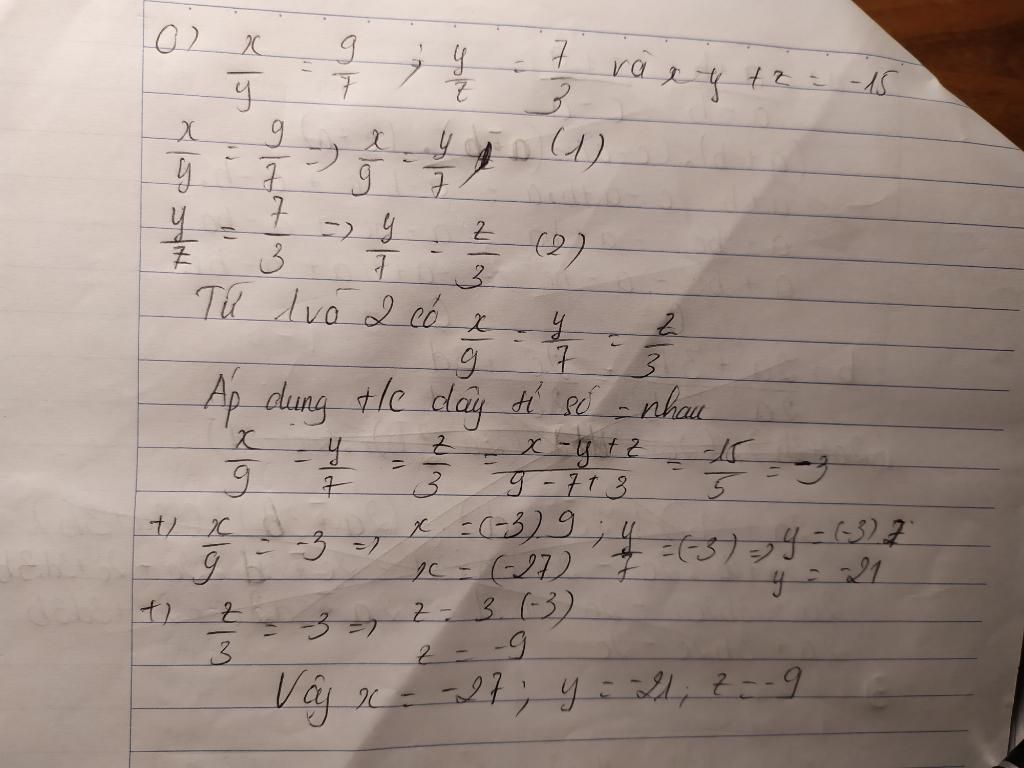 0) x/y = 9/7 ; y/z = 7/3 và x-y+z = -15
x/y = 9/7 => x/9 = y/7 (1)
y/z = 7/3 => y/7 = z/3 (2)
Từ 1 và 2 có x/9 = y/7 = z/3
Áp dụng t/c dãy tỉ số = nhau
x/9 = y/7 = z/3 = x-y+z/9-7+3 = -15/5 = -3
+) x/9 = -3 => x = (-3).9 ; y/7 = (-3) => y = (-3).7
x = (-27) y = -21
+) z/3 = -3 => z = 3.(-3)
z = -9
Vậy x = -27; y = -21; z = -9